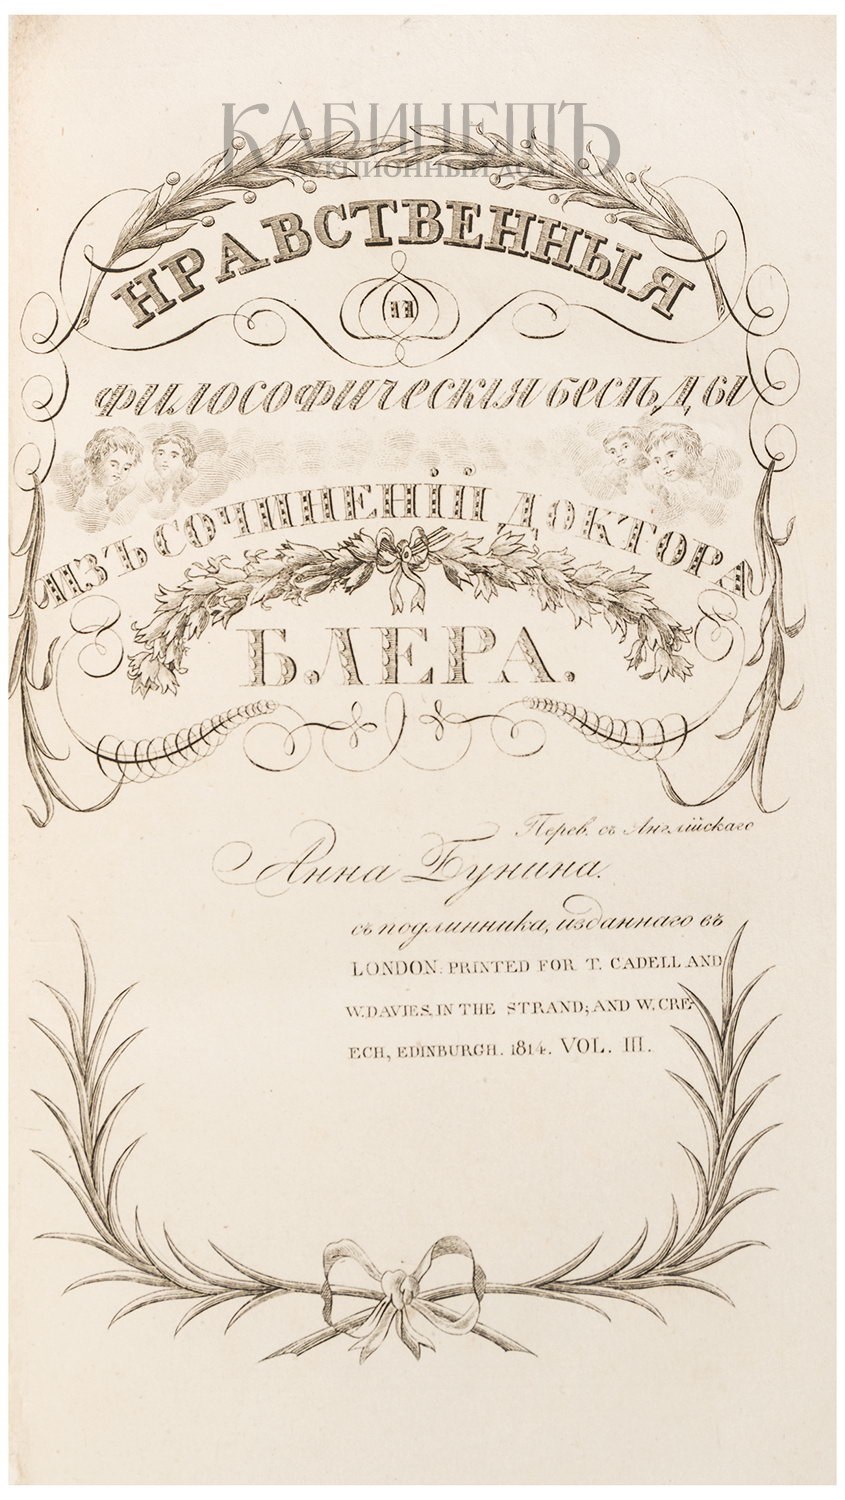 КАБИНЕТЪ
АУКЦИОННЫЙ ДОМ
НРАВСТВЕННЫЯ
И
ФИЛОСОФИЧЕСКІЯ БЕСѢДЫ
ИЗЪ СОЧИНЕНІЙ ДОКТОРА
БЛЕРА.
Перев. съ Англійскаго
Анна Бунина.
съ подлинника, изданнаго въ
LONDON: PRINTED FOR T. CADELL AND
W. DAVIES, IN THE STRAND; AND W. CRE-
ECH, EDINBURGH. 1814. VOL. III.